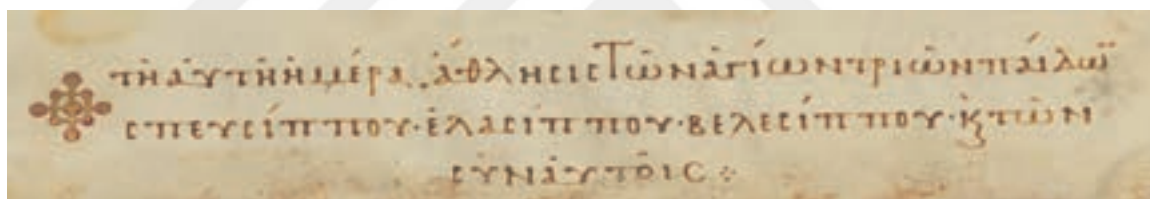 τῆ αὐτῆ ἡμέρα. ἄθλησις τῶν ἁγίων τριῶν παίδω
σπευσίππου· ἐλασίππου· βελεσίππου· κ τῶν
σὺν αὐτοῖς ⁘